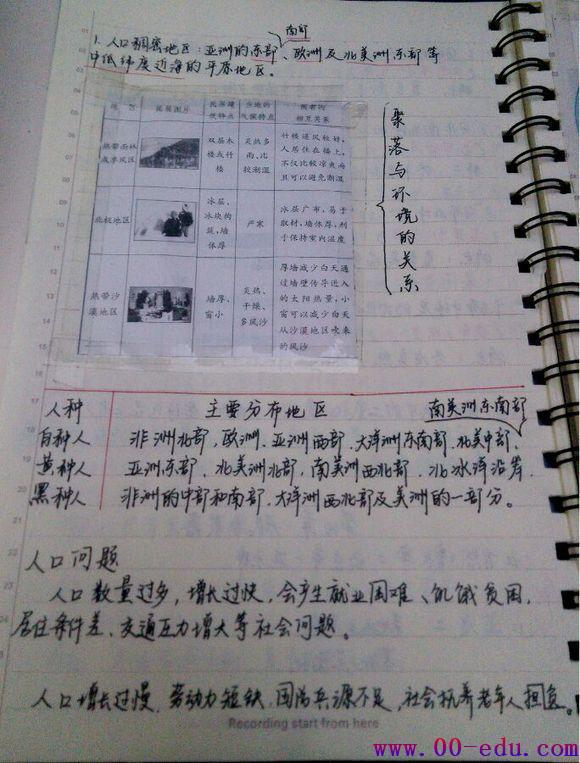 南部
1. 人口稠密地区：亚洲的东部、欧洲及北美洲东部等
中低纬度近海的平原地区。
地 区 民居图片 民居建筑特点 当地的气候特点 两者的相互关系
热带雨林或季风区 双层木楼或竹楼 炎热多雨、比较潮湿 竹楼通风较好，人居住在楼上，不仅比较凉爽而且可以避免潮湿
北极地区 冰屋、冰块构筑，墙体厚 严寒 冰层广布，易于取材，墙体厚，利于保持室内温度
热带沙漠地区 墙厚、窗小 炎热、干燥、多风沙 厚墙减少白天通过墙壁传导进入的太阳热量，小窗可以减少白天从沙漠地区吹来的风沙
聚落与环境的关系
人种 主要分布地区 南美洲东南部
白种人 非洲北部，欧洲、亚洲西部、大洋洲东南部、北美中部、
黄种人 亚洲东部、北美洲北部，南美洲西北部、北冰洋沿岸。
黑种人 非洲的中部和南部、大洋洲西北部及美洲的一部分。
人口问题
人口数量过多，增长过快，会产生就业困难、饥饿贫困，
居住条件差、交通压力增大等社会问题。
人口增长过慢，劳动力短缺，国防兵源不足，社会抚养老年人担重。
Recording start from here
www.00-edu.com